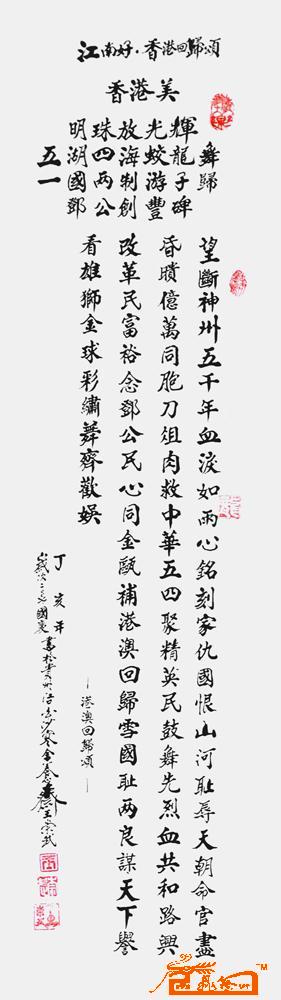 江南好·香港回歸頌
香港美
舞歸
輝龍子碑
光蛟游豐
放海制創
珠四兩公
明湖國鄧
五一
望斷神州五千年血淚如雨心銘刻家仇國恨山河恥辱天朝命官盡
昏聵億萬同胞刀俎肉救中華五四聚精英民鼓舞先烈血共和路興
改革民富裕念鄧公民心同金甌補港澳回歸雪國恥兩良謀天下譽
看雄獅金球彩繡舞齊歡娛
—港澳回歸頌—
丁亥年
國慶書於貴州